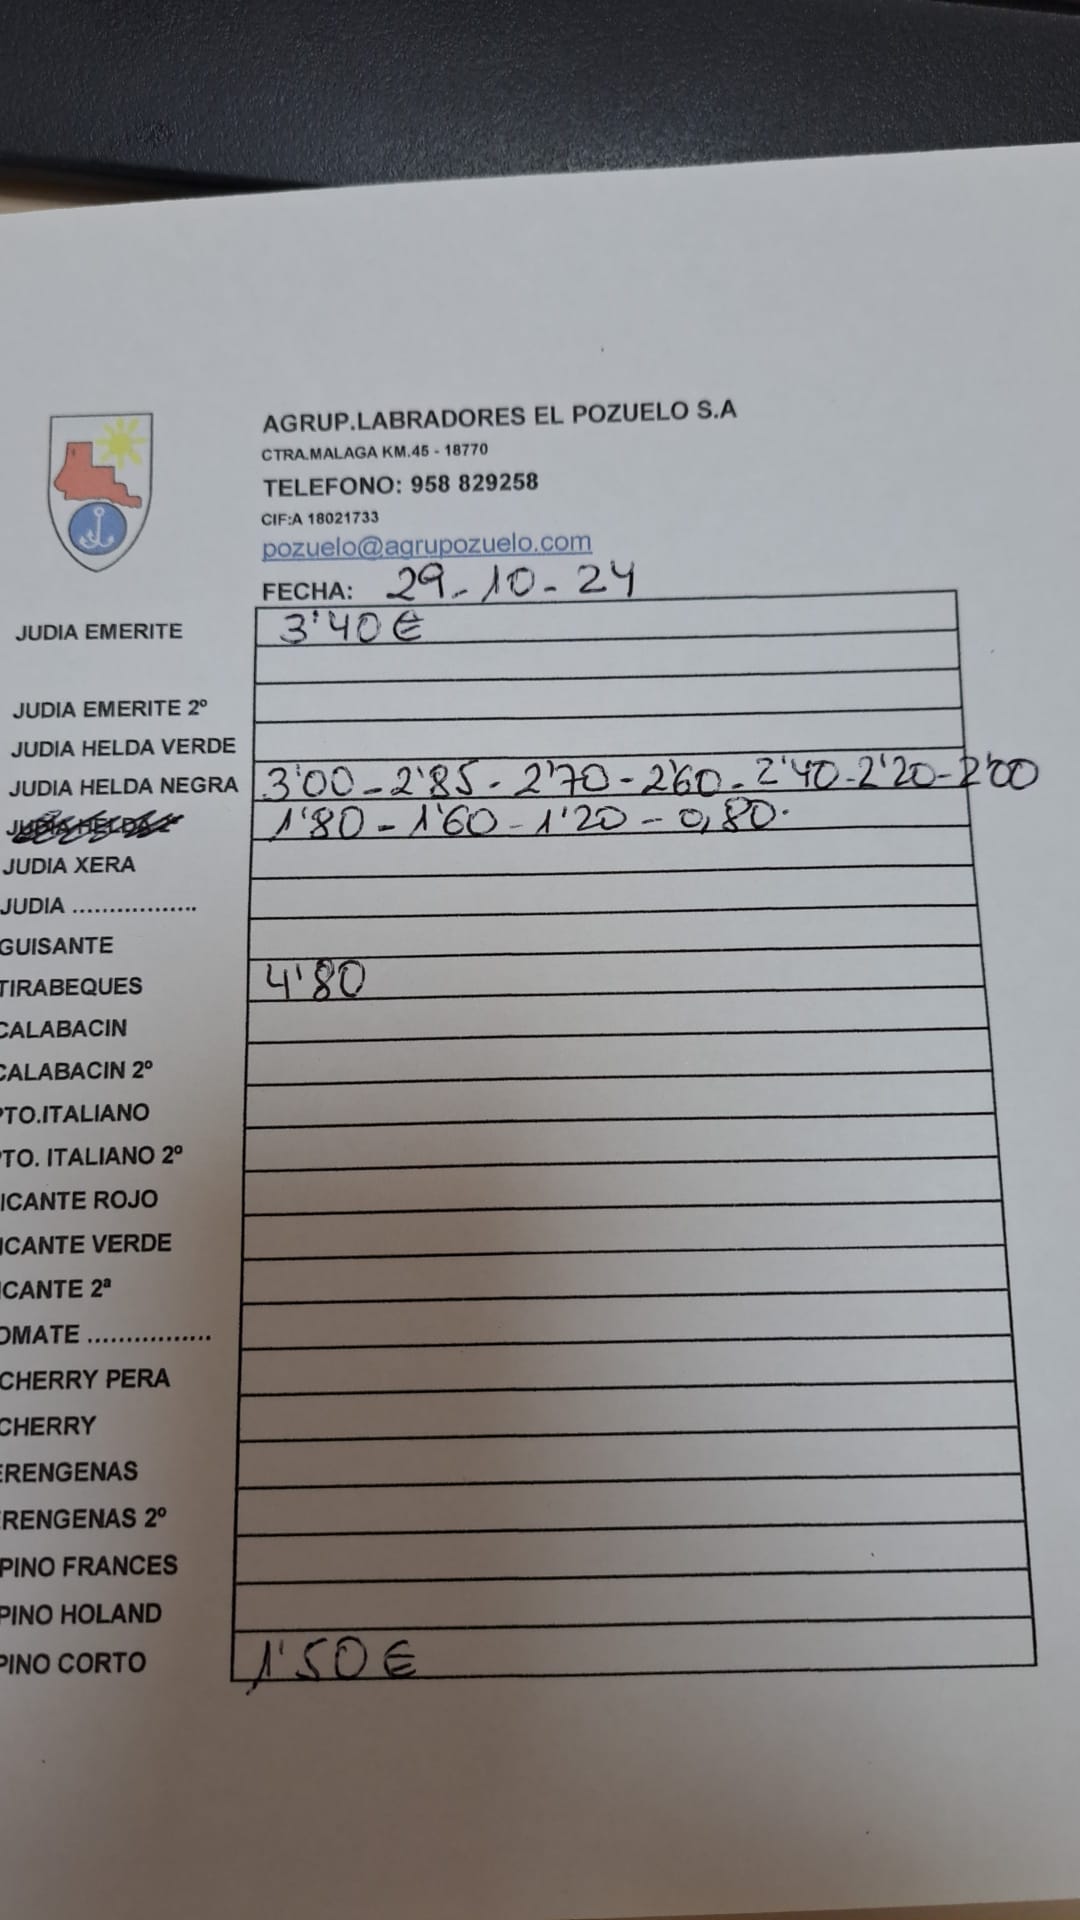 AGRUP.LABRADORES EL POZUELO S.A
CTRA.MALAGA KM.45 - 18770
TELEFONO: 958 829258
CIF:A 18021733
pozuelo@agrupozuelo.com
FECHA: 29-10-24
JUDIA EMERITE 3'40€
JUDIA EMERITE 2º
JUDIA HELDA VERDE
JUDIA HELDA NEGRA 3'00-2'85-2'70-2'60-2'40-2'20-2'00
1'80-1'60-1'20-0,80.
JUDIA XERA
JUDIA .................
GUISANTE
TIRABEQUES 4'80
CALABACIN
CALABACIN 2º
PTO.ITALIANO
TO. ITALIANO 2º
ICANTE ROJO
ICANTE VERDE
ICANTE 2ª
OMATE .................
CHERRY PERA
CHERRY
ERENGENAS
RENGENAS 2º
PINO FRANCES
PINO HOLAND
PINO CORTO 1'50€